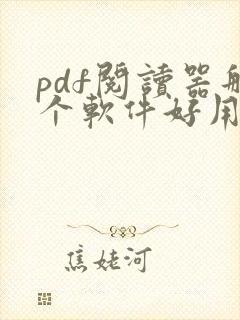 pdf閱讀器哪
个軟件好用
焦姥河